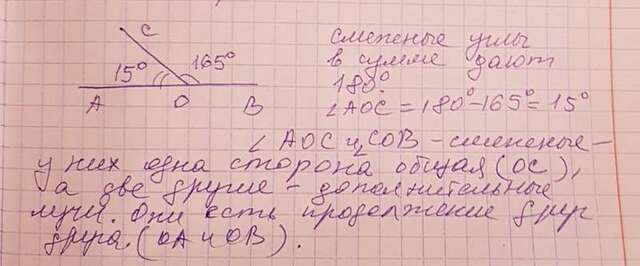 C
15° 165°
A O B
смежные углы
в сумме дают
180°
∠AOC = 180° - 165° = 15°
∠ AOC и ∠COB - смежные -
у них одна сторона общая (OC),
а две другие - дополнительные
лучи. Они есть продолжение друг
друга. (OA и OB).